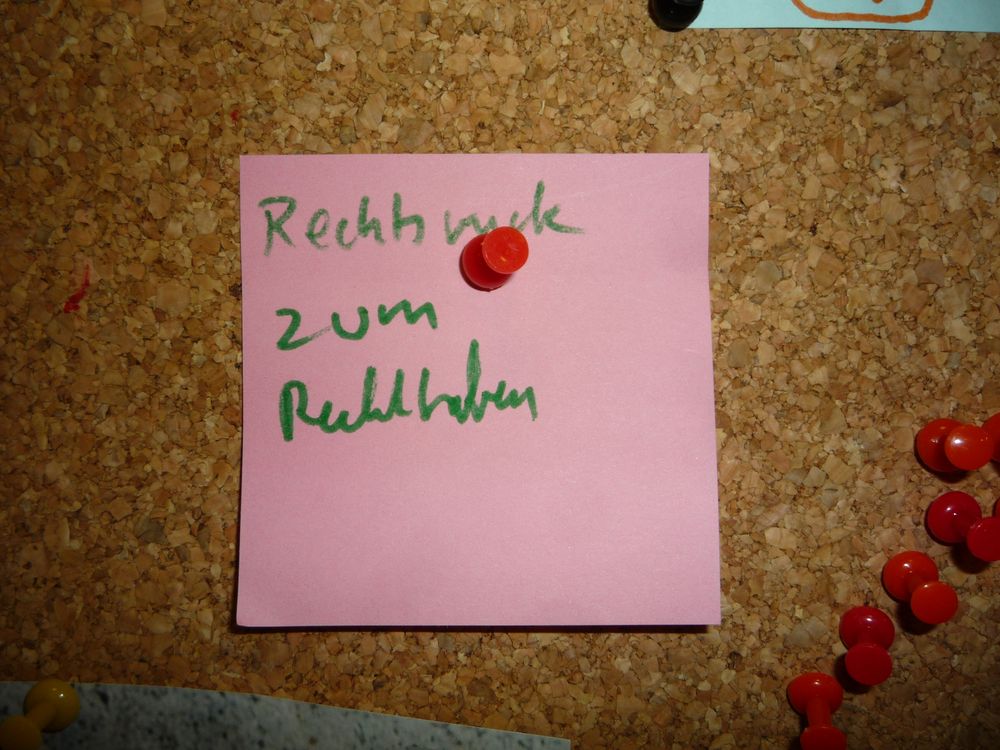 Rechtsruck
zum
Rechthaben